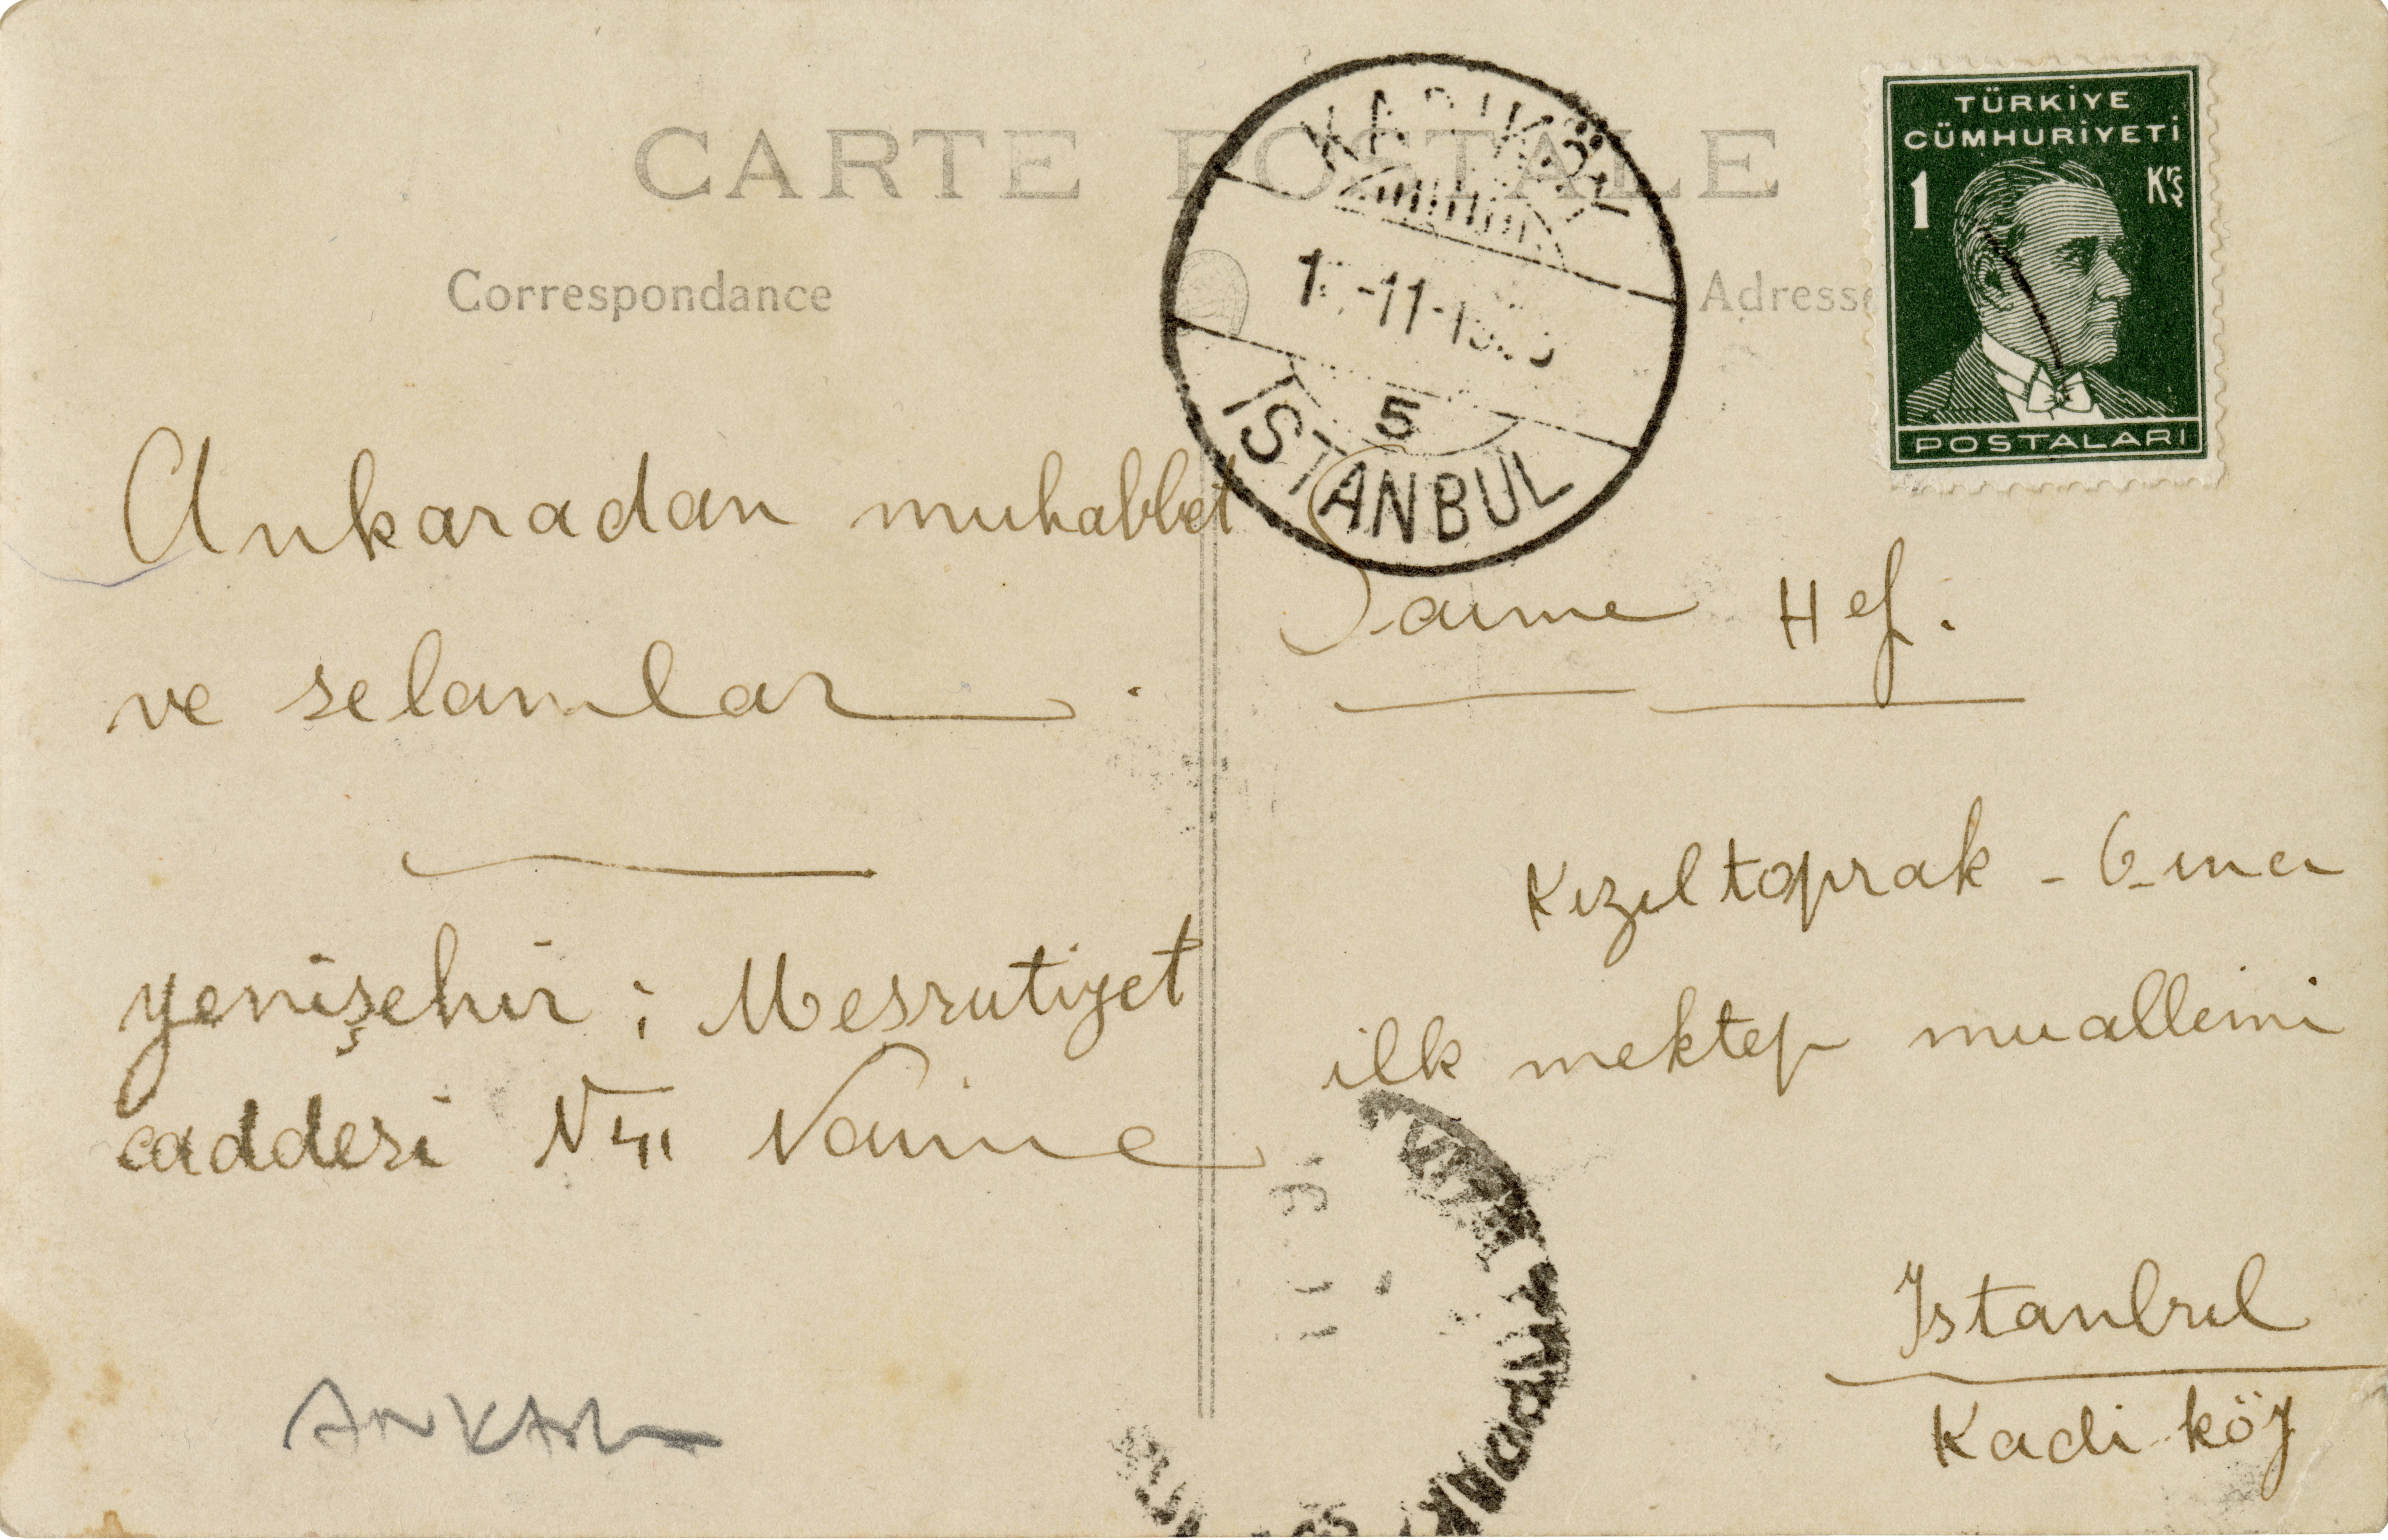 CARTE POSTALE
Correspondance
Adresse
TÜRKİYE
CÜMHURİYETİ
1 Krş
POSTALARI
KADIKÖY
-11-
5
İSTANBUL
Ankaradan muhabbet
ve selamlar.
yenişehir: Mesrutiyet
caddesi Naime
Hef.
Kızıltoprak - 6_ıncı
ilk mektep muallimi
Istanbul
Kadi köy
ANKARA